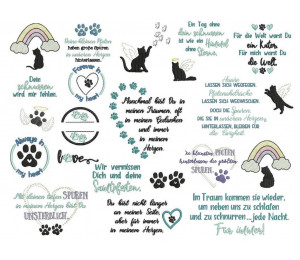 Deine kleinen Pfoten
haben große Spuren
in unseren Herzen
hinterlassen.
Ein Tag ohne
Dein schnurren
ist wie ein
Himmel
ohne
Sterne.
Für die Welt warst Du
ein Kater.
Für mich warst Du
die Welt.
Dein
schnurren
wird mir fehlen.
Forever in
my heart
Manchmal bist Du in
meinen Träumen, oft
in meinen
Gedanken und
immer in
meinem
Herzen.
Katzen
LASSEN SICH
LASSEN SICH VERWÖHNEN.
DOCH DIE
Spuren
DIE SIE IN UNSEREN
Herzen
HINTERLASSEN, BLEIBEN FÜR
DIE EWIGKEIT.
Always in
my heart
love
Wir vermissen
Dich und deine
Samtpfoten.
Mit deinen
SPUREN
in meinem Herzen bist Du
UNSTERBLICH.
Du bist nicht länger
an meiner Seite,
aber für immer
in meinem Herzen.
hinterlassen die größten
SPUREN
im Herzen.
Im Traum kommen sie wieder,
um neben uns zu schlafen
und zu schnurren... jede Nacht.
Für immer!